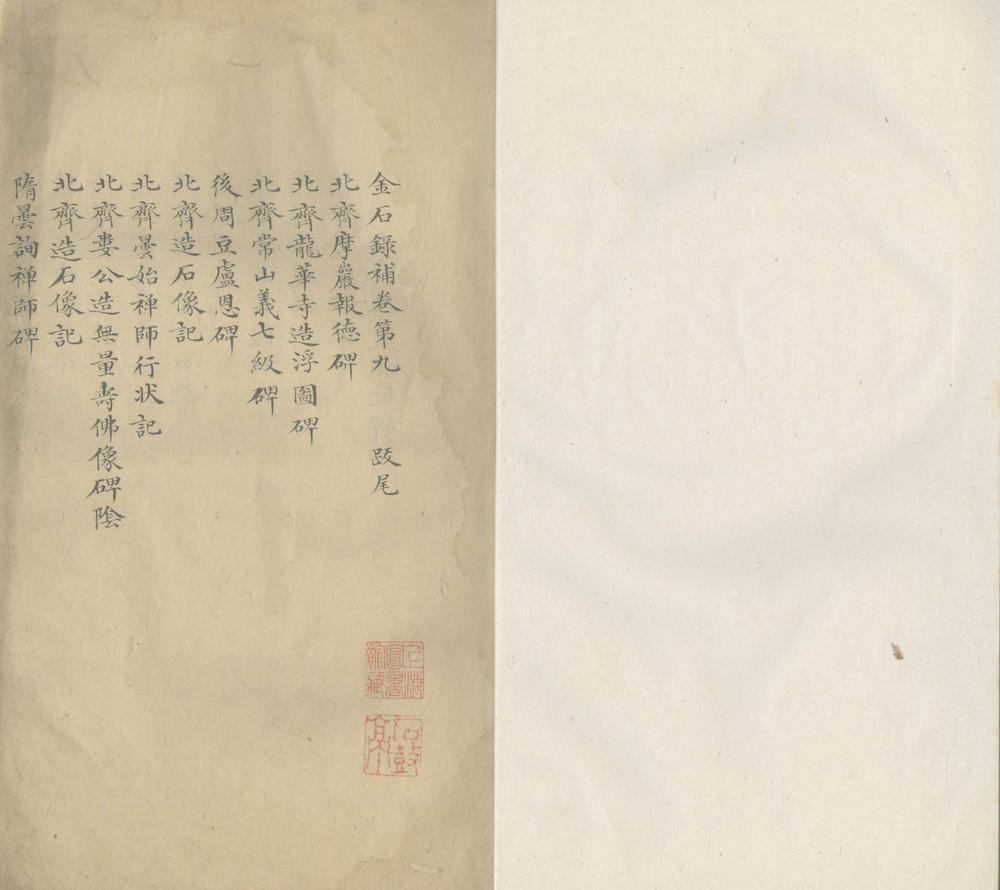 金石錄補卷第九　跋尾
北齊摩巖報德碑
北齊龍華寺造浮圖碑
北齊常山義七級碑
後周豆盧恩碑
北齊造石像記
北齊曇始禅師行状記
北齊婁公造無量壽佛像碑陰
北齊造石像記
隋曇詢禅師碑
上海圖書館藏
石鼓亭